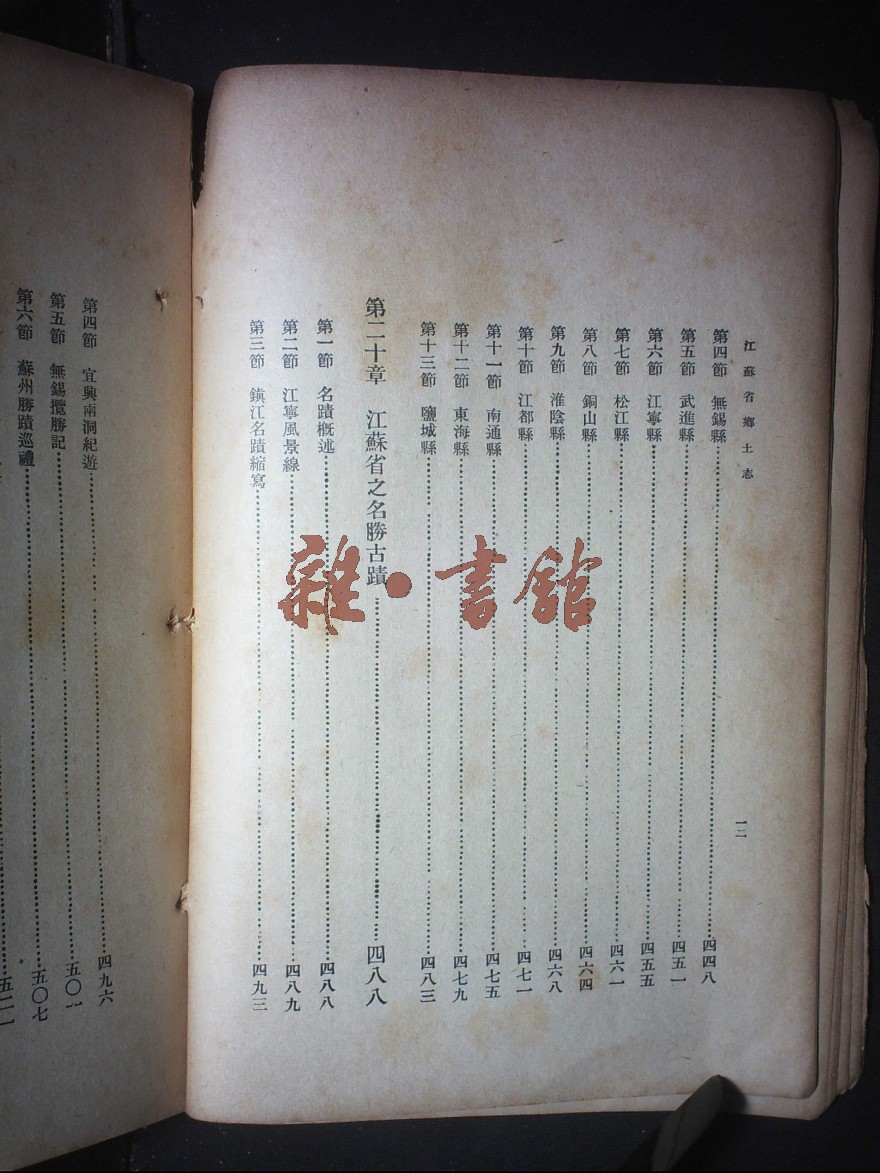 江蘇省鄉土志
一二
第四節 無錫縣……四四八
第五節 武進縣……四五一
第六節 江寧縣……四五五
第七節 松江縣……四六一
第八節 銅山縣……四六四
第九節 淮陰縣……四六八
第十節 江都縣……四七一
第十一節 南通縣……四七五
第十二節 東海縣……四七九
第十三節 鹽城縣……四八三
第二十章 江蘇省之名勝古蹟……四八八
第一節 名蹟概述……四八八
第二節 江寧風景線……四八九
第三節 鎮江名蹟縮寫……四九三
第四節 宜興兩洞紀遊……四九六
第五節 無錫攬勝記……五〇一
第六節 蘇州勝蹟巡禮……五〇七
雜·書館